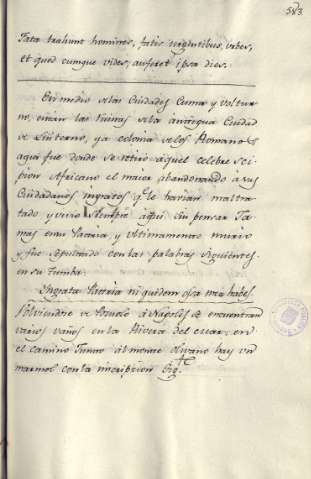 583.
Fata trahunt homines, fatis urgentibus, urbes,
et quod cumque vides, auferet ipsa dies.
En medio de las Ciudades Cuma y Voltur-
no, estan las ruinas de la antigua Ciudad
de Linterno, ya colonia de los Romanos
aqui fue donde se retiro aquel celebre Sci-
pion Africano el maior abandonando a sus
Ciudadanos ingratos qe. le havian maltra-
tado y vivio siempre aqui sin pensar Ja-
mas en su Patria, y Ultimamente murio
y fue sepultado con las palabras siguientes
en su tumba.
Ingrata Patria ni quidem ossa mea habes
Volviendre de Pozuolo à Napoles se encuentran
varios vaños en la Rivera del mar, en
el camino Junto al monte olivano hay un
marmol con la inscripcion sigte.